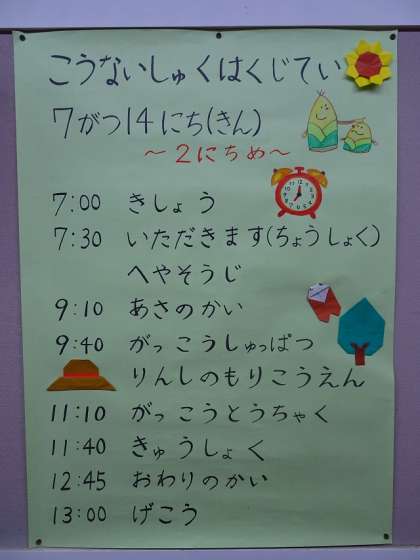 こうないしゅくはくじてい
7がつ14にち(きん)
～2にちめ～
7:00 きしょう
7:30 いただきます(ちょうしょく)
へやそうじ
9:10 あさのかい
9:40 がっこうしゅっぱつ
りんしのもりこうえん
11:10 がっこうとうちゃく
11:40 きゅうしょく
12:45 おわりのかい
13:00 げこう